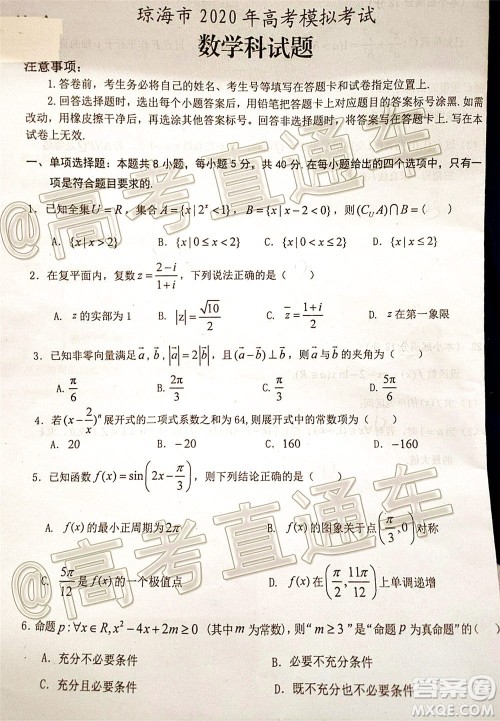 琼海市 2020 年高考模拟考试
数学科试题
注意事项：
1. 答卷前，考生务必将自己的姓名、考生号等填写在答题卡和试卷指定位置上.
2. 回答选择题时，选出每个小题答案后，用铅笔把答题卡上对应题目的答案标号涂黑. 如需
改动，用橡皮擦干净后，再选涂其他答案标号. 回答非选择题时，将答案写在答题卡上，写在本
试卷上无效.
一、单项选择题：本题共 8 小题，每小题 5 分，共 40 分. 在每小题给出的四个选项中，只有一
项是符合题目要求的.
1. 已知全集U=R，集合 A={x|2^x<1}，B={x|x-2<0}，则(C_U A)∩B=（ ）
A. {x|x>2} B. {x|0≤x<2} C. {x|0<x≤2} D. {x|x≤2}
2. 在复平面内，复数 z=(2-i)/(1+i)，下列说法正确的是（ ）
A. z 的实部为 1 B. |z|=√10/2 C. z̄=(1+i)/2 D. z 在第一象限
3. 已知非零向量满足 a⃗,b⃗，|a⃗|=2|b⃗|，且(a⃗-b⃗)⊥b⃗，则a⃗与b⃗的夹角为（ ）
A. π/6 B. 2π/3 C. π/3 D. 5π/6
4. 若(x-2/x)^n 展开式的二项式系数之和为 64,则展开式中的常数项为（ ）
A. 20 B. -20 C. 160 D. -160
5. 已知函数 f(x)=sin(2x-π/3)，则下列结论正确的是（ ）
A. f(x)的最小正周期为2π B. f(x)的图象关于点(π/3,0)对称
C. 5π/12是f(x)的一个极值点 D. f(x)在(π/2,π)上单调递增
6. 命题 p:∀x∈R,x²-4x+2m≥0 (其中m为常数)，则“m≥3”是“命题 p为真命题”的（ ）
A. 充分不必要条件 B. 必要不充分条件
C. 充分必要条件 D. 既不充分也不必要条件
@高考直通车
@高考直通车
答案圈
MXQE.COM